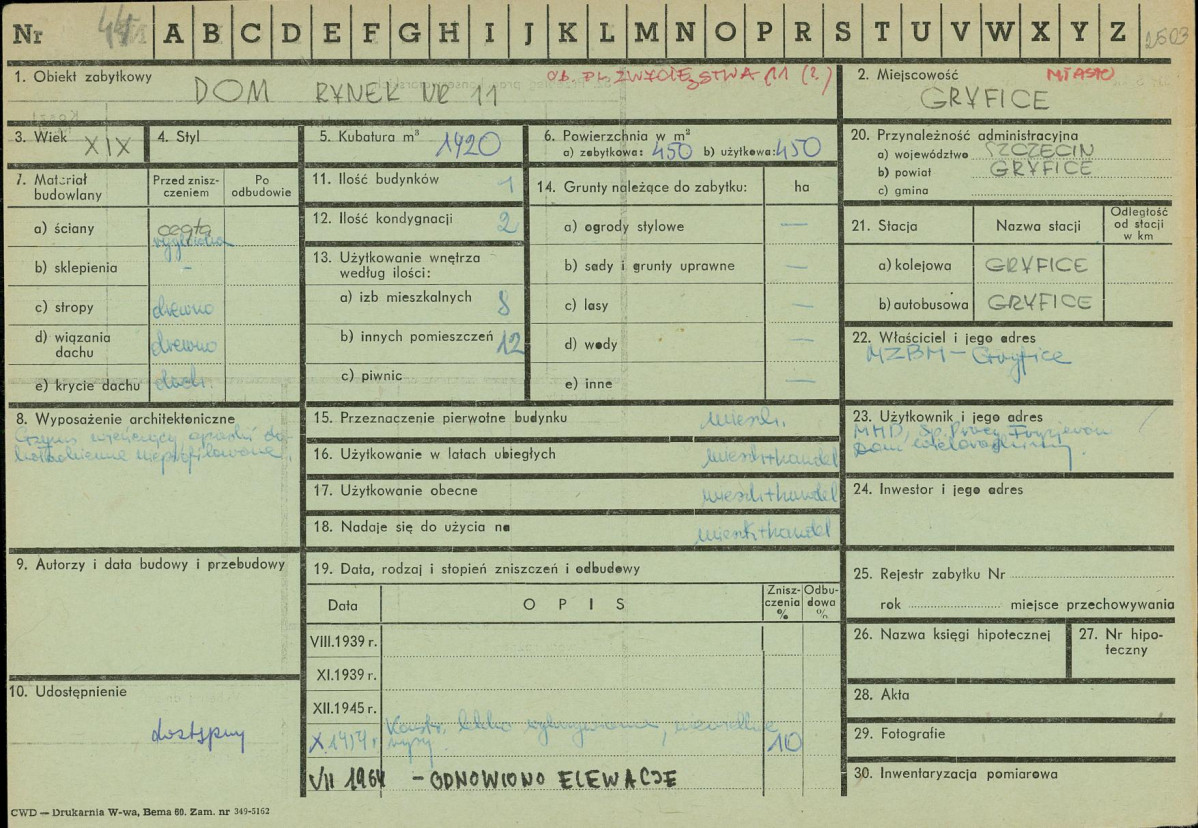 Nr 44 A B C D E F G H I J K L M N O P R S T U V W X Y Z 2503
1. Obiekt zabytkowy
DOM RYNEK NR 11
OB. PL. ZWYCIĘSTWA 11 (?)
2. Miejscowość MIASTO
GRYFICE
3. Wiek XIX
4. Styl
5. Kubatura m³ 1420
6. Powierzchnia w m²
a) zabytkowa: 450 b) użytkowa: 450
20. Przynależność administracyjna
a) województwo SZCZECIN
b) powiat GRYFICE
c) gmina
7. Materiał budowlany
Przed znisz-
czeniem
Po
odbudowie
a) ściany cegła
b) sklepienia –
c) stropy drewno
d) wiązania
dachu drewno
e) krycie dachu dach.
11. Ilość budynków 1
12. Ilość kondygnacji 2
13. Użytkowanie wnętrza
według ilości:
a) izb mieszkalnych 8
b) innych pomieszczeń 12
c) piwnic
14. Grunty należące do zabytku: ha
a) ogrody stylowe —
b) sady i grunty uprawne —
c) lasy —
d) wody —
e) inne —
21. Stacja Nazwa stacji
Odległość
od stacji
w km
a) kolejowa GRYFICE
b) autobusowa GRYFICE
22. Właściciel i jego adres
MZBM – Gryfice
8. Wyposażenie architektoniczne
Gzyms wieńczący opaski do-
nieprofilowane.
15. Przeznaczenie pierwotne budynku mieszk.
16. Użytkowanie w latach ubiegłych mieszk+handel
17. Użytkowanie obecne mieszk+handel
18. Nadaje się do użycia na mieszk+handel
23. Użytkownik i jego adres
MHD, Sp. Pracy Fryzjerów
Dom wielorodzinny
24. Inwestor i jego adres
9. Autorzy i data budowy i przebudowy
19. Data, rodzaj i stopień zniszczeń i odbudowy
Data OPIS
Znisz-
czenia
%
Odbu-
dowa
%
VIII.1939 r.
XI.1939 r.
XII.1945 r.
X 1959 r. Konstr. lekko niewielkie
rysy. 10
VII 1964 – ODNOWIONO ELEWACJE
25. Rejestr zabytku Nr
rok miejsce przechowywania
26. Nazwa księgi hipotecznej
27. Nr hipo-
teczny
10. Udostępnienie
dostępny
28. Akta
29. Fotografie
30. Inwentaryzacja pomiarowa
CWD — Drukarnia W-wa, Bema 60. Zam. nr 349-5162